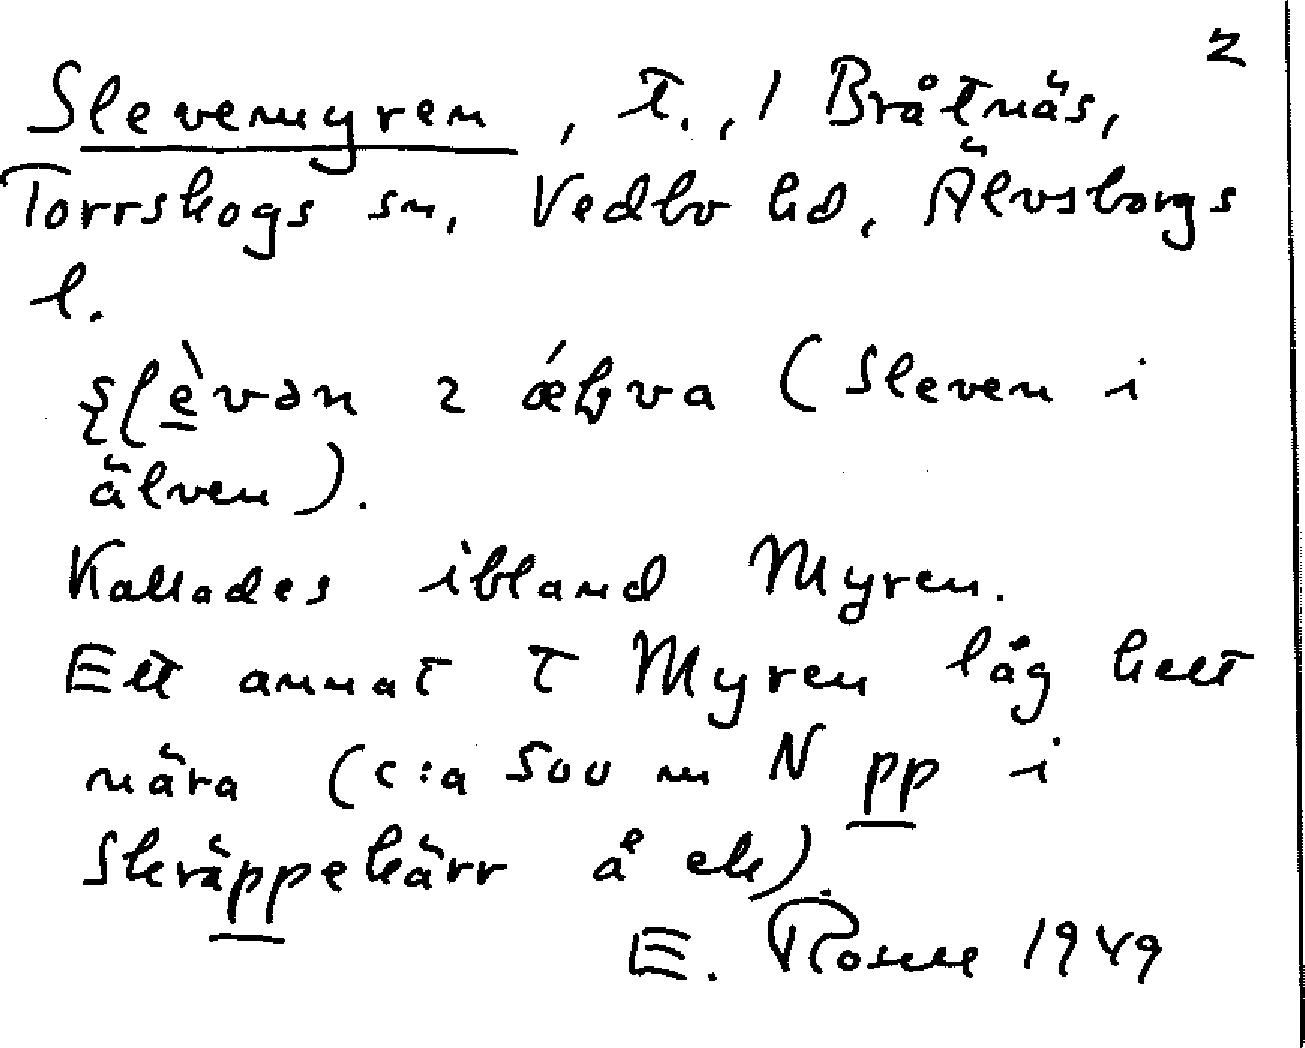 2
Slevemyren, t., 1 Bråtnäs,
Torrskogs sn, Vedbo hd, Älvsborgs
l.
(Sleven i
älven).
Kallades ibland Myren.
Ett annat t Myren låg helt
nära (c:a 500 m N pp i
Skräppekärr å ek).
E. Rosell 1949